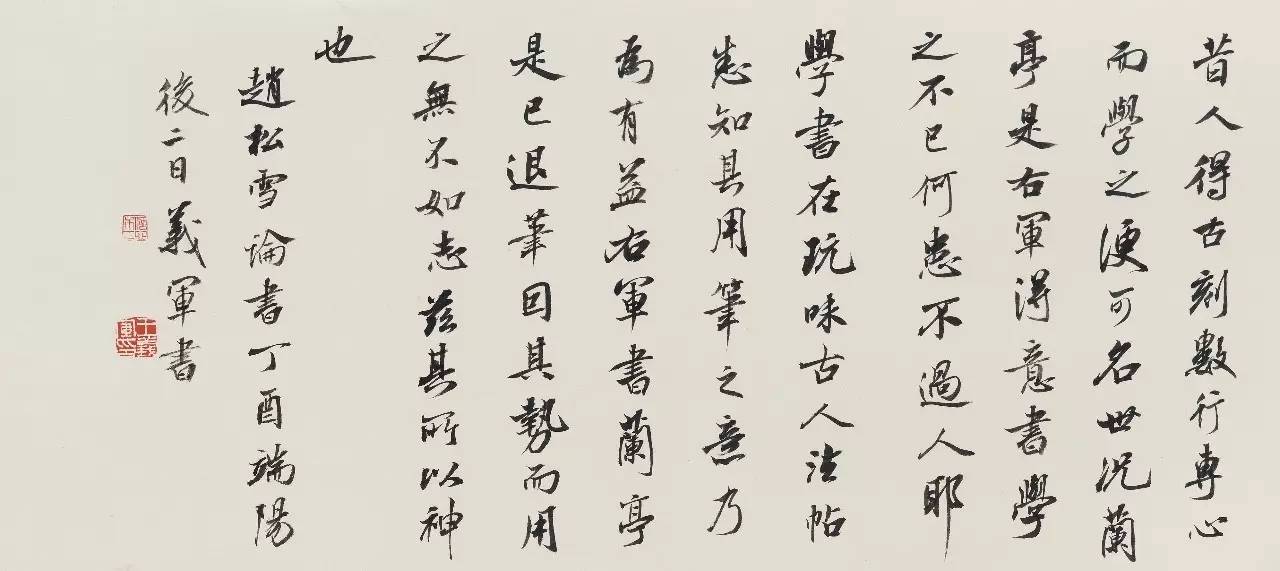 昔人得古刻數行専心
而學之便可名世况蘭
亭是右軍得意書學
之不已何患不過人耶
學書在玩味古人法帖
悉知其用筆之意乃
為有益右軍書蘭亭
是已退筆因其勢而用
之無不如志兹其所以神
也
趙松雪論書丁酉端陽
後二日義軍書